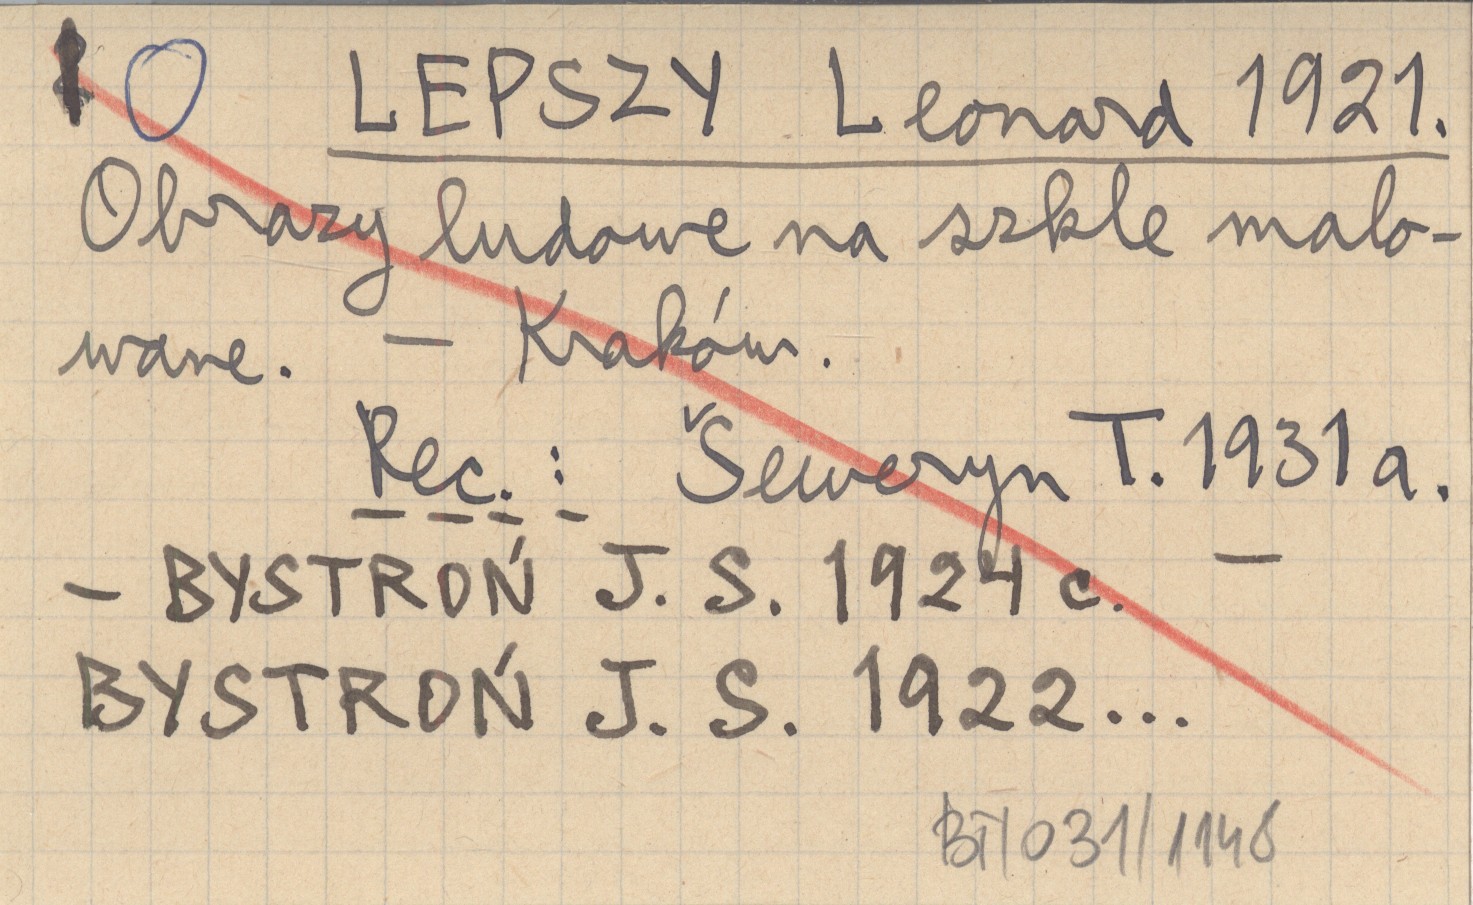 O LEPSZY Leonard 1921.
Obrazy ludowe na szkle malo-
wane. — Kraków.
Rec.: Šeweryn T. 1931a.
—
– BYSTROŃ J. S. 1924c.
BYSTROŃ J. S. 1922...
BT/031/1146